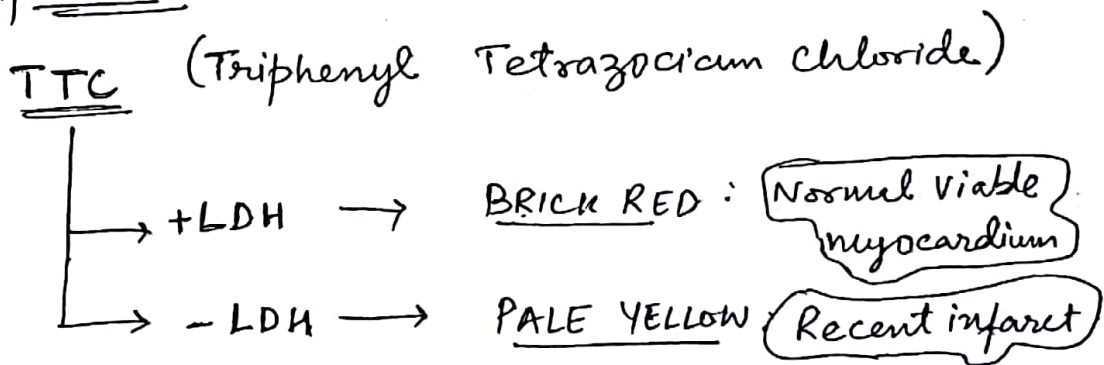 TTC (Triphenyl Tetrazocium Chloride)
+LDH → BRICK RED : Normal Viable
myocardium
- LDH → PALE YELLOW : Recent infarct